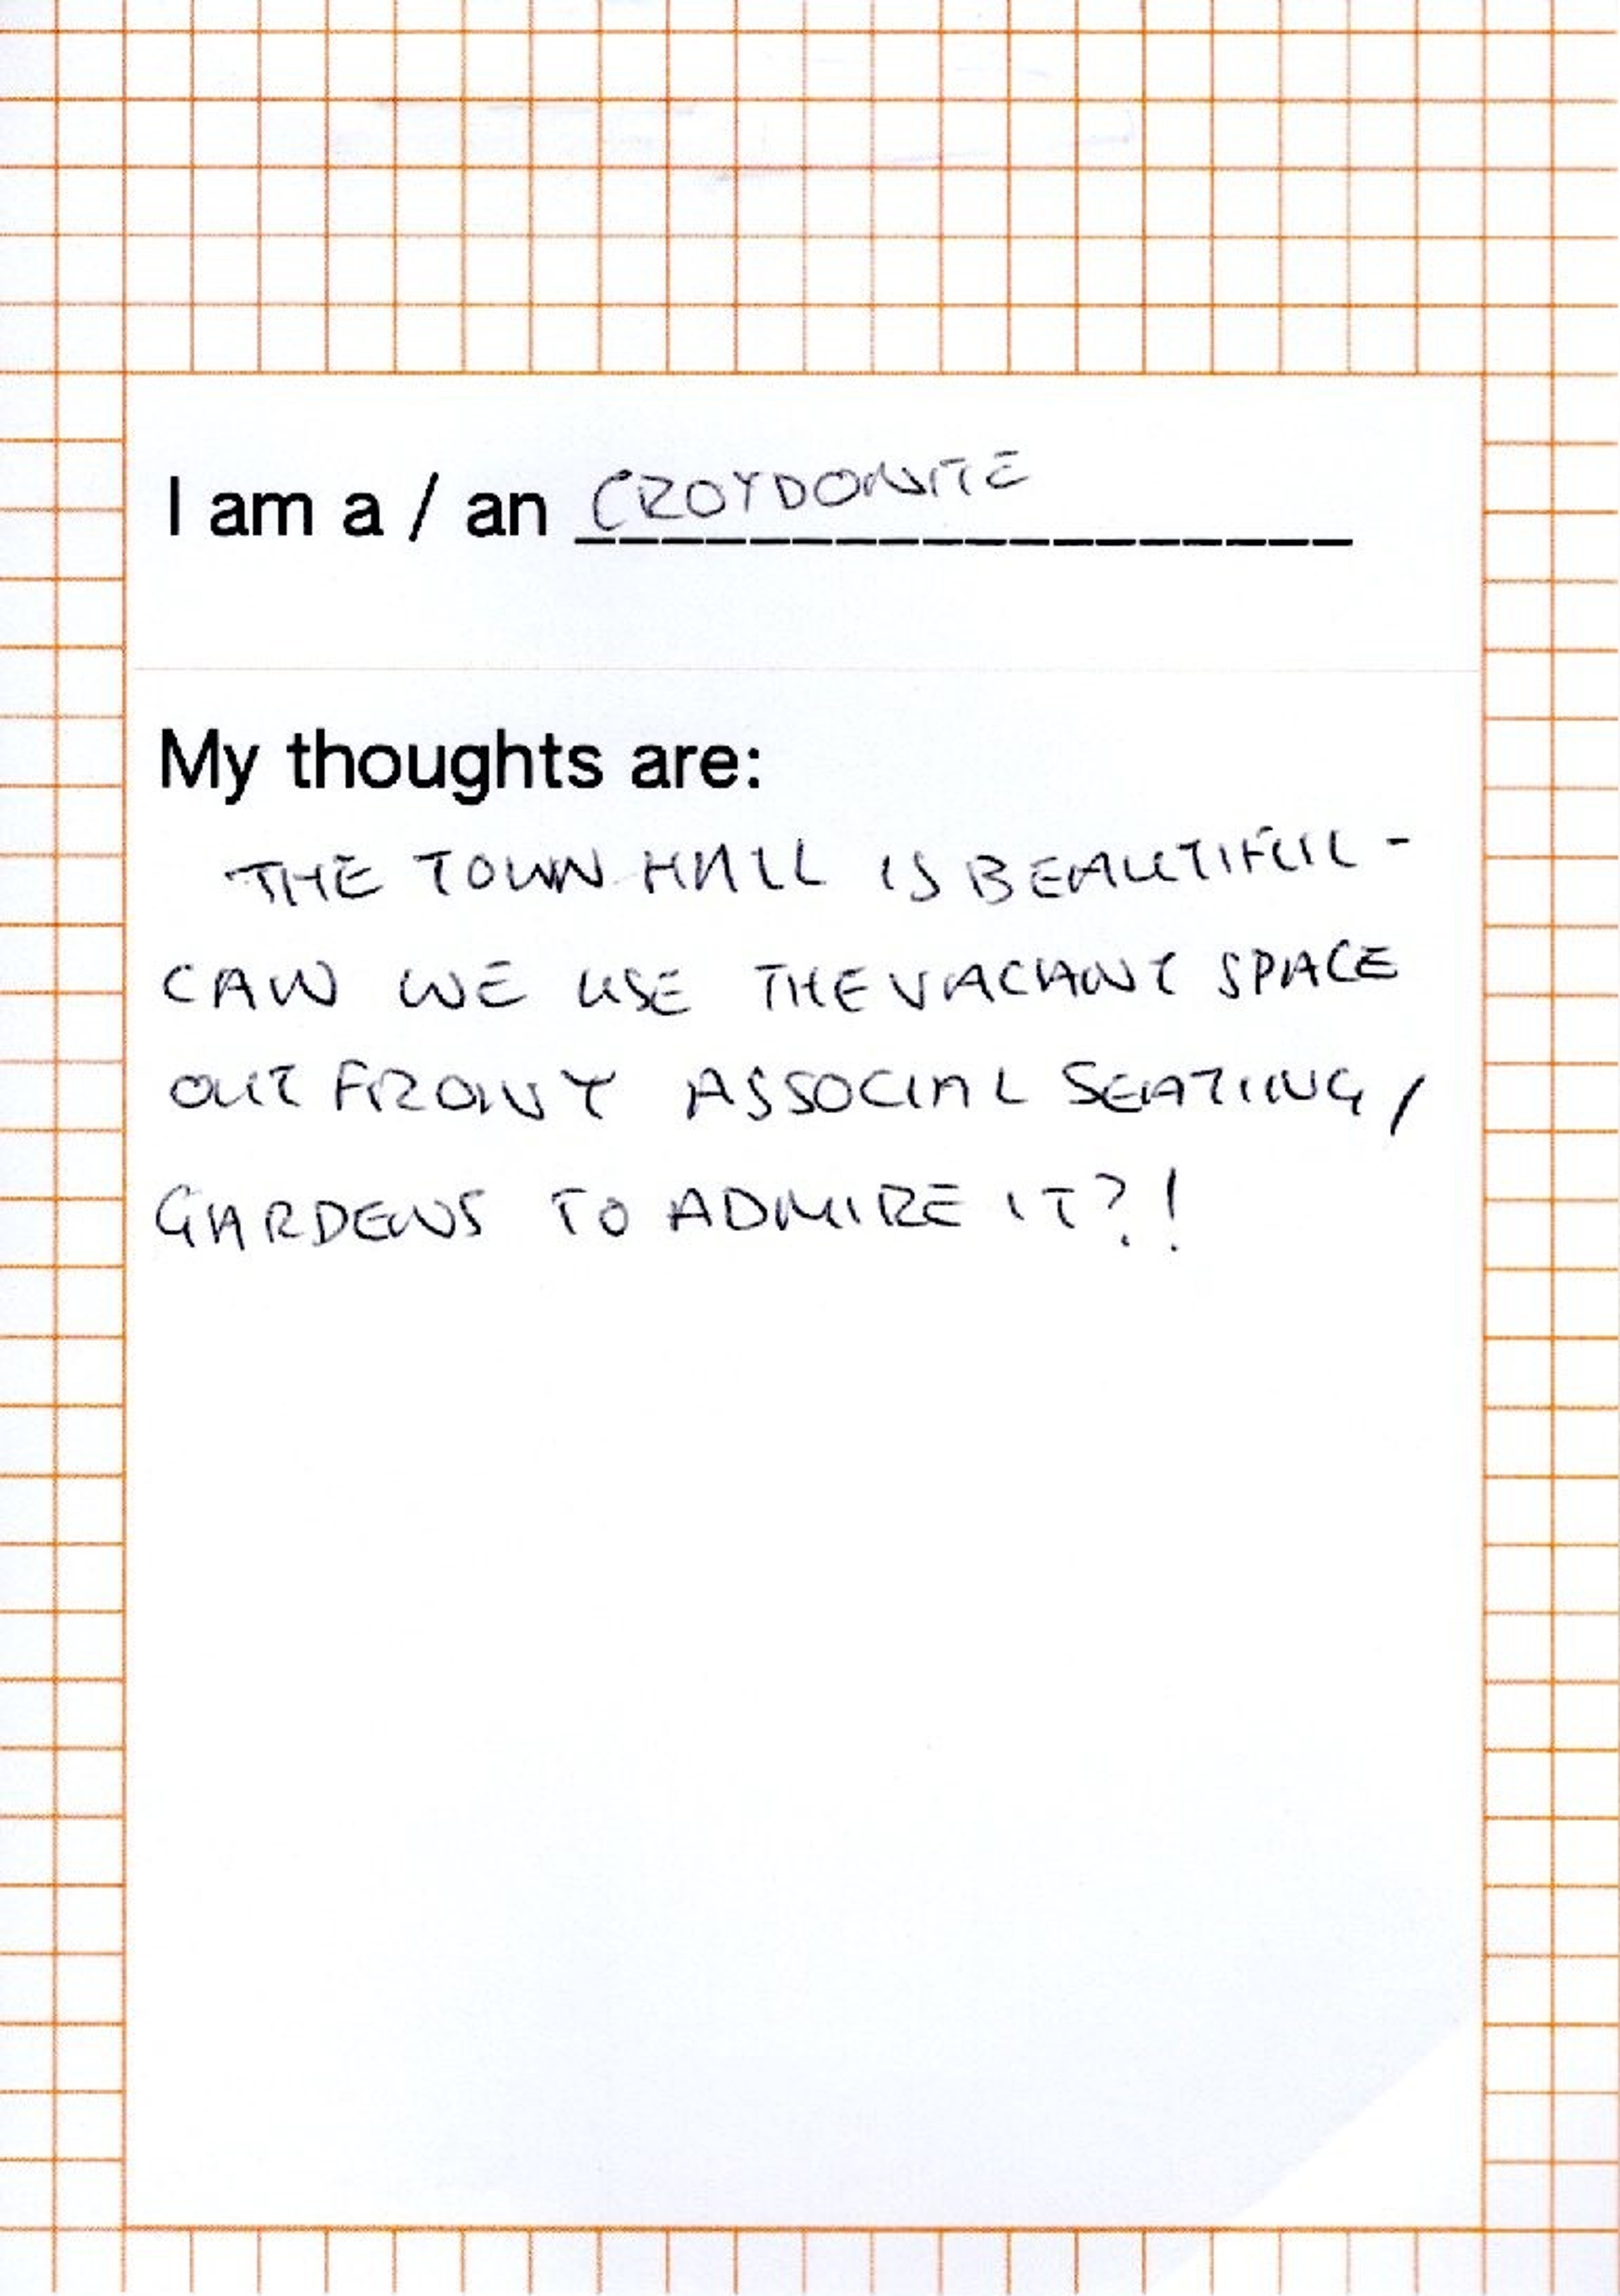 I am a / an CROYDONITE
My thoughts are:
THE TOWN HALL IS BEAUTIFUL -
CAN WE USE THE VACANT SPACE
OUT FRONT AS SOCIAL SEATING /
GARDENS TO ADMIRE IT?!